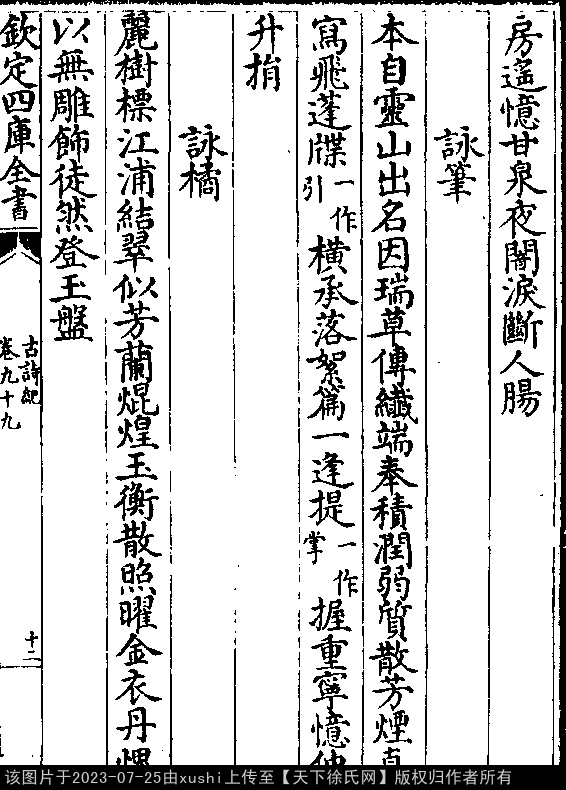 房遥憶甘泉夜闇淚斷人腸
詠筆
本自靈山出名因瑞草傳纎端奉積潤弱質散芳煙直
寫飛蓬牒一作引橫承落絮篇一逢提一作掌握重寧憶仲
升捐
詠橘
麗樹標江浦結翠似芳蘭焜煌玉衡散照曜金衣丹愧
以無雕飾徒然登玉盤
欽定四庫全書
古詩紀
卷九十九
十二
该图片于2023-07-25由xushi上传至【天下徐氏网】版权归作者所有